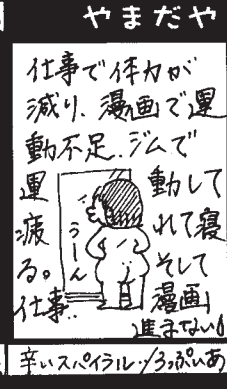 やまだや
仕事で体力が
減り、漫画で運
動不足、ジムで
運動して
疲れて寝
る。そして
仕事..漫画
進まない
うーん
辛いスパイラル…/ろっぷいあ